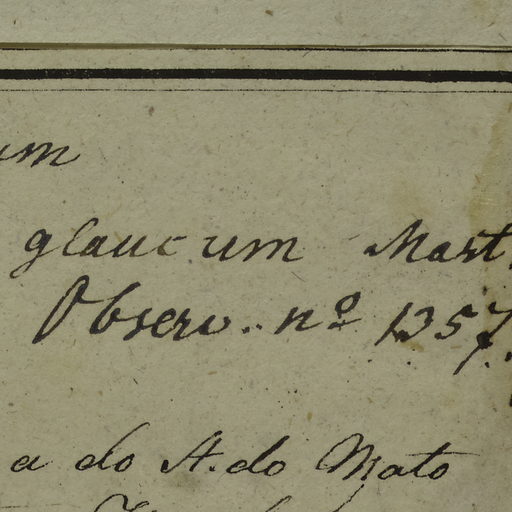 um
glaucum Mart.
Observ. nº 1357.
a do A. do Mato